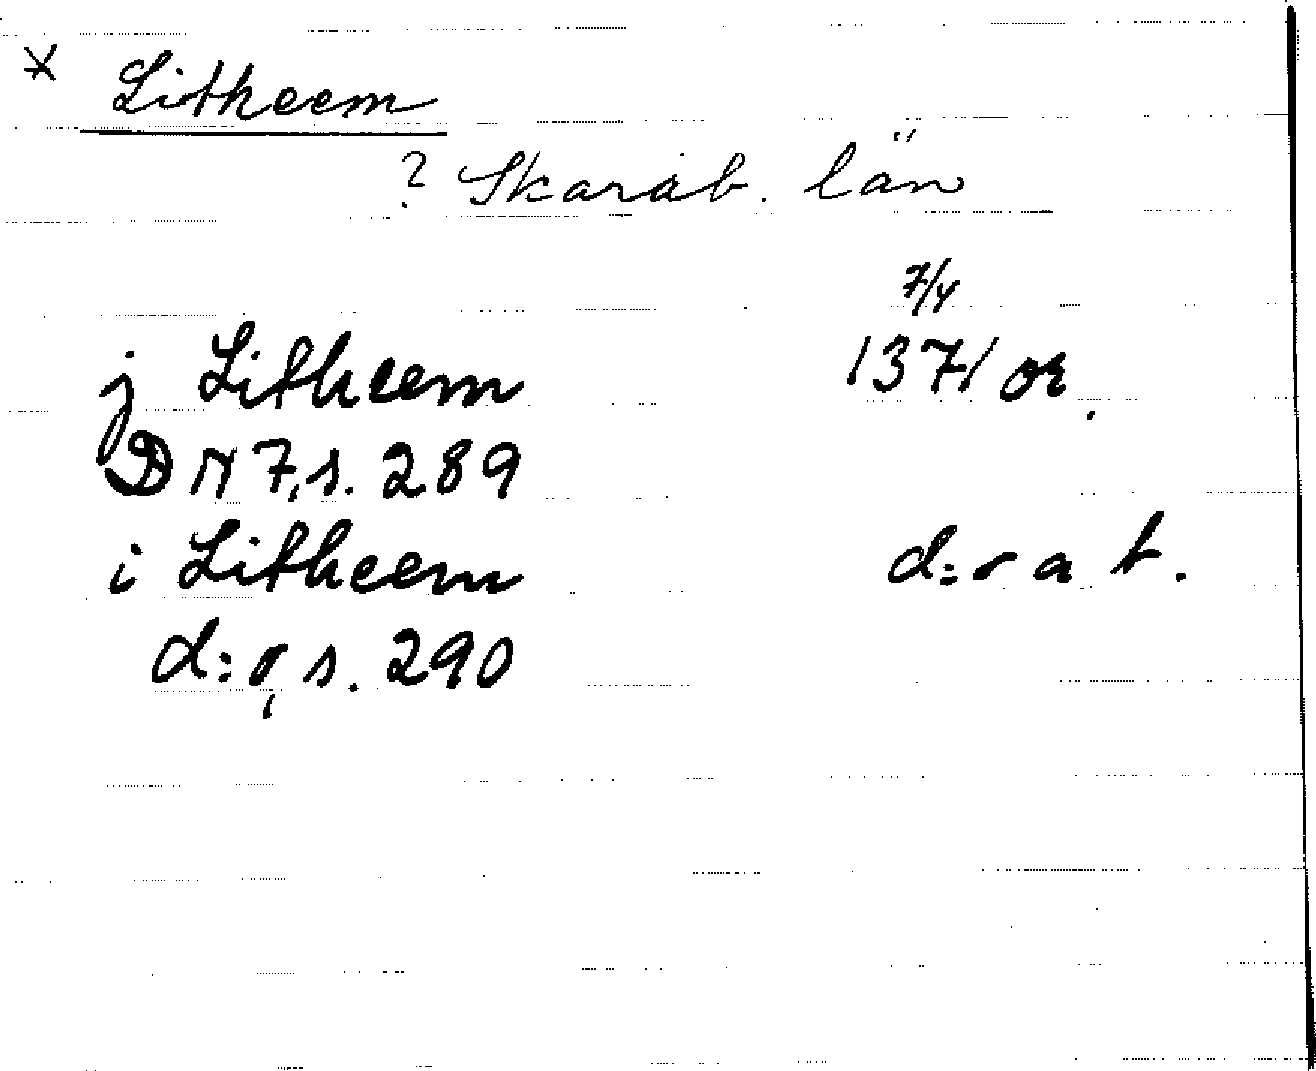 * Litheem
? Skarab. län
7/4
j Litheem 1371 or.
DN 7, s. 289
i Litheem d:o a t.
d:o, s. 290